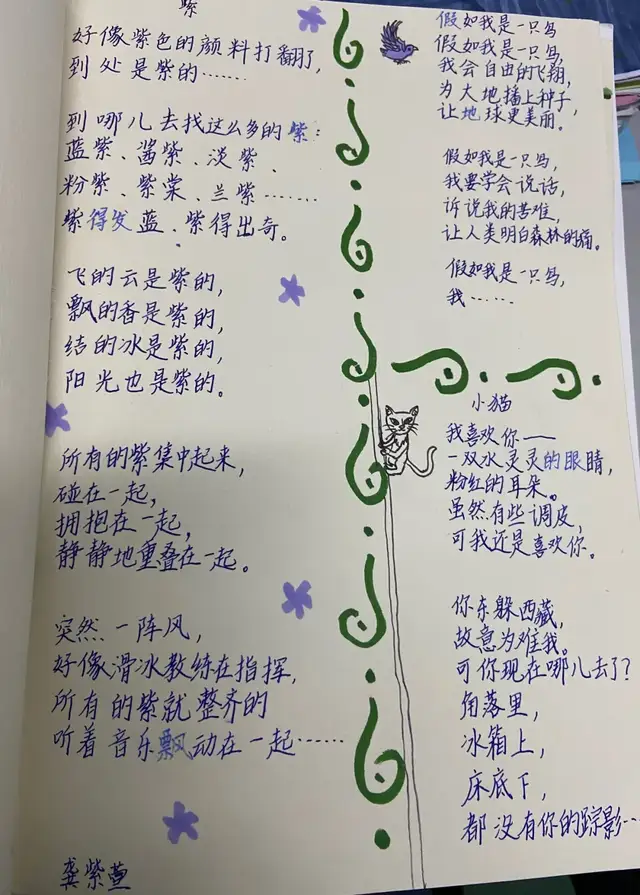 紫
好像紫色的颜料打翻了,
到处是紫的……
到哪儿去找这么多的紫:
蓝紫、酱紫、淡紫、
粉紫、紫棠、兰紫……
紫得发蓝、紫得出奇。
飞的云是紫的,
飘的香是紫的,
结的冰是紫的,
阳光也是紫的。
所有的紫集中起来,
碰在一起,
拥抱在一起,
静静地重叠在一起。
突然一阵风,
好像滑冰教练在指挥,
所有的紫就整齐的
听着音乐飘动在一起……
龚紫萱
假如我是一只鸟
假如我是一只鸟,
我会自由的飞翔,
为大地播上种子,
让地球更美丽。
假如我是一只鸟,
我要学会说话,
诉说我的苦难,
让人类明白森林的痛。
假如我是一只鸟,
我……
小猫
我喜欢你——
一双水灵灵的眼睛,
粉红的耳朵。
虽然有些调皮,
可我还是喜欢你。
你东躲西藏,
故意为难我。
可你现在哪儿去了?
角落里,
冰箱上,
床底下,
都没有你的踪影…